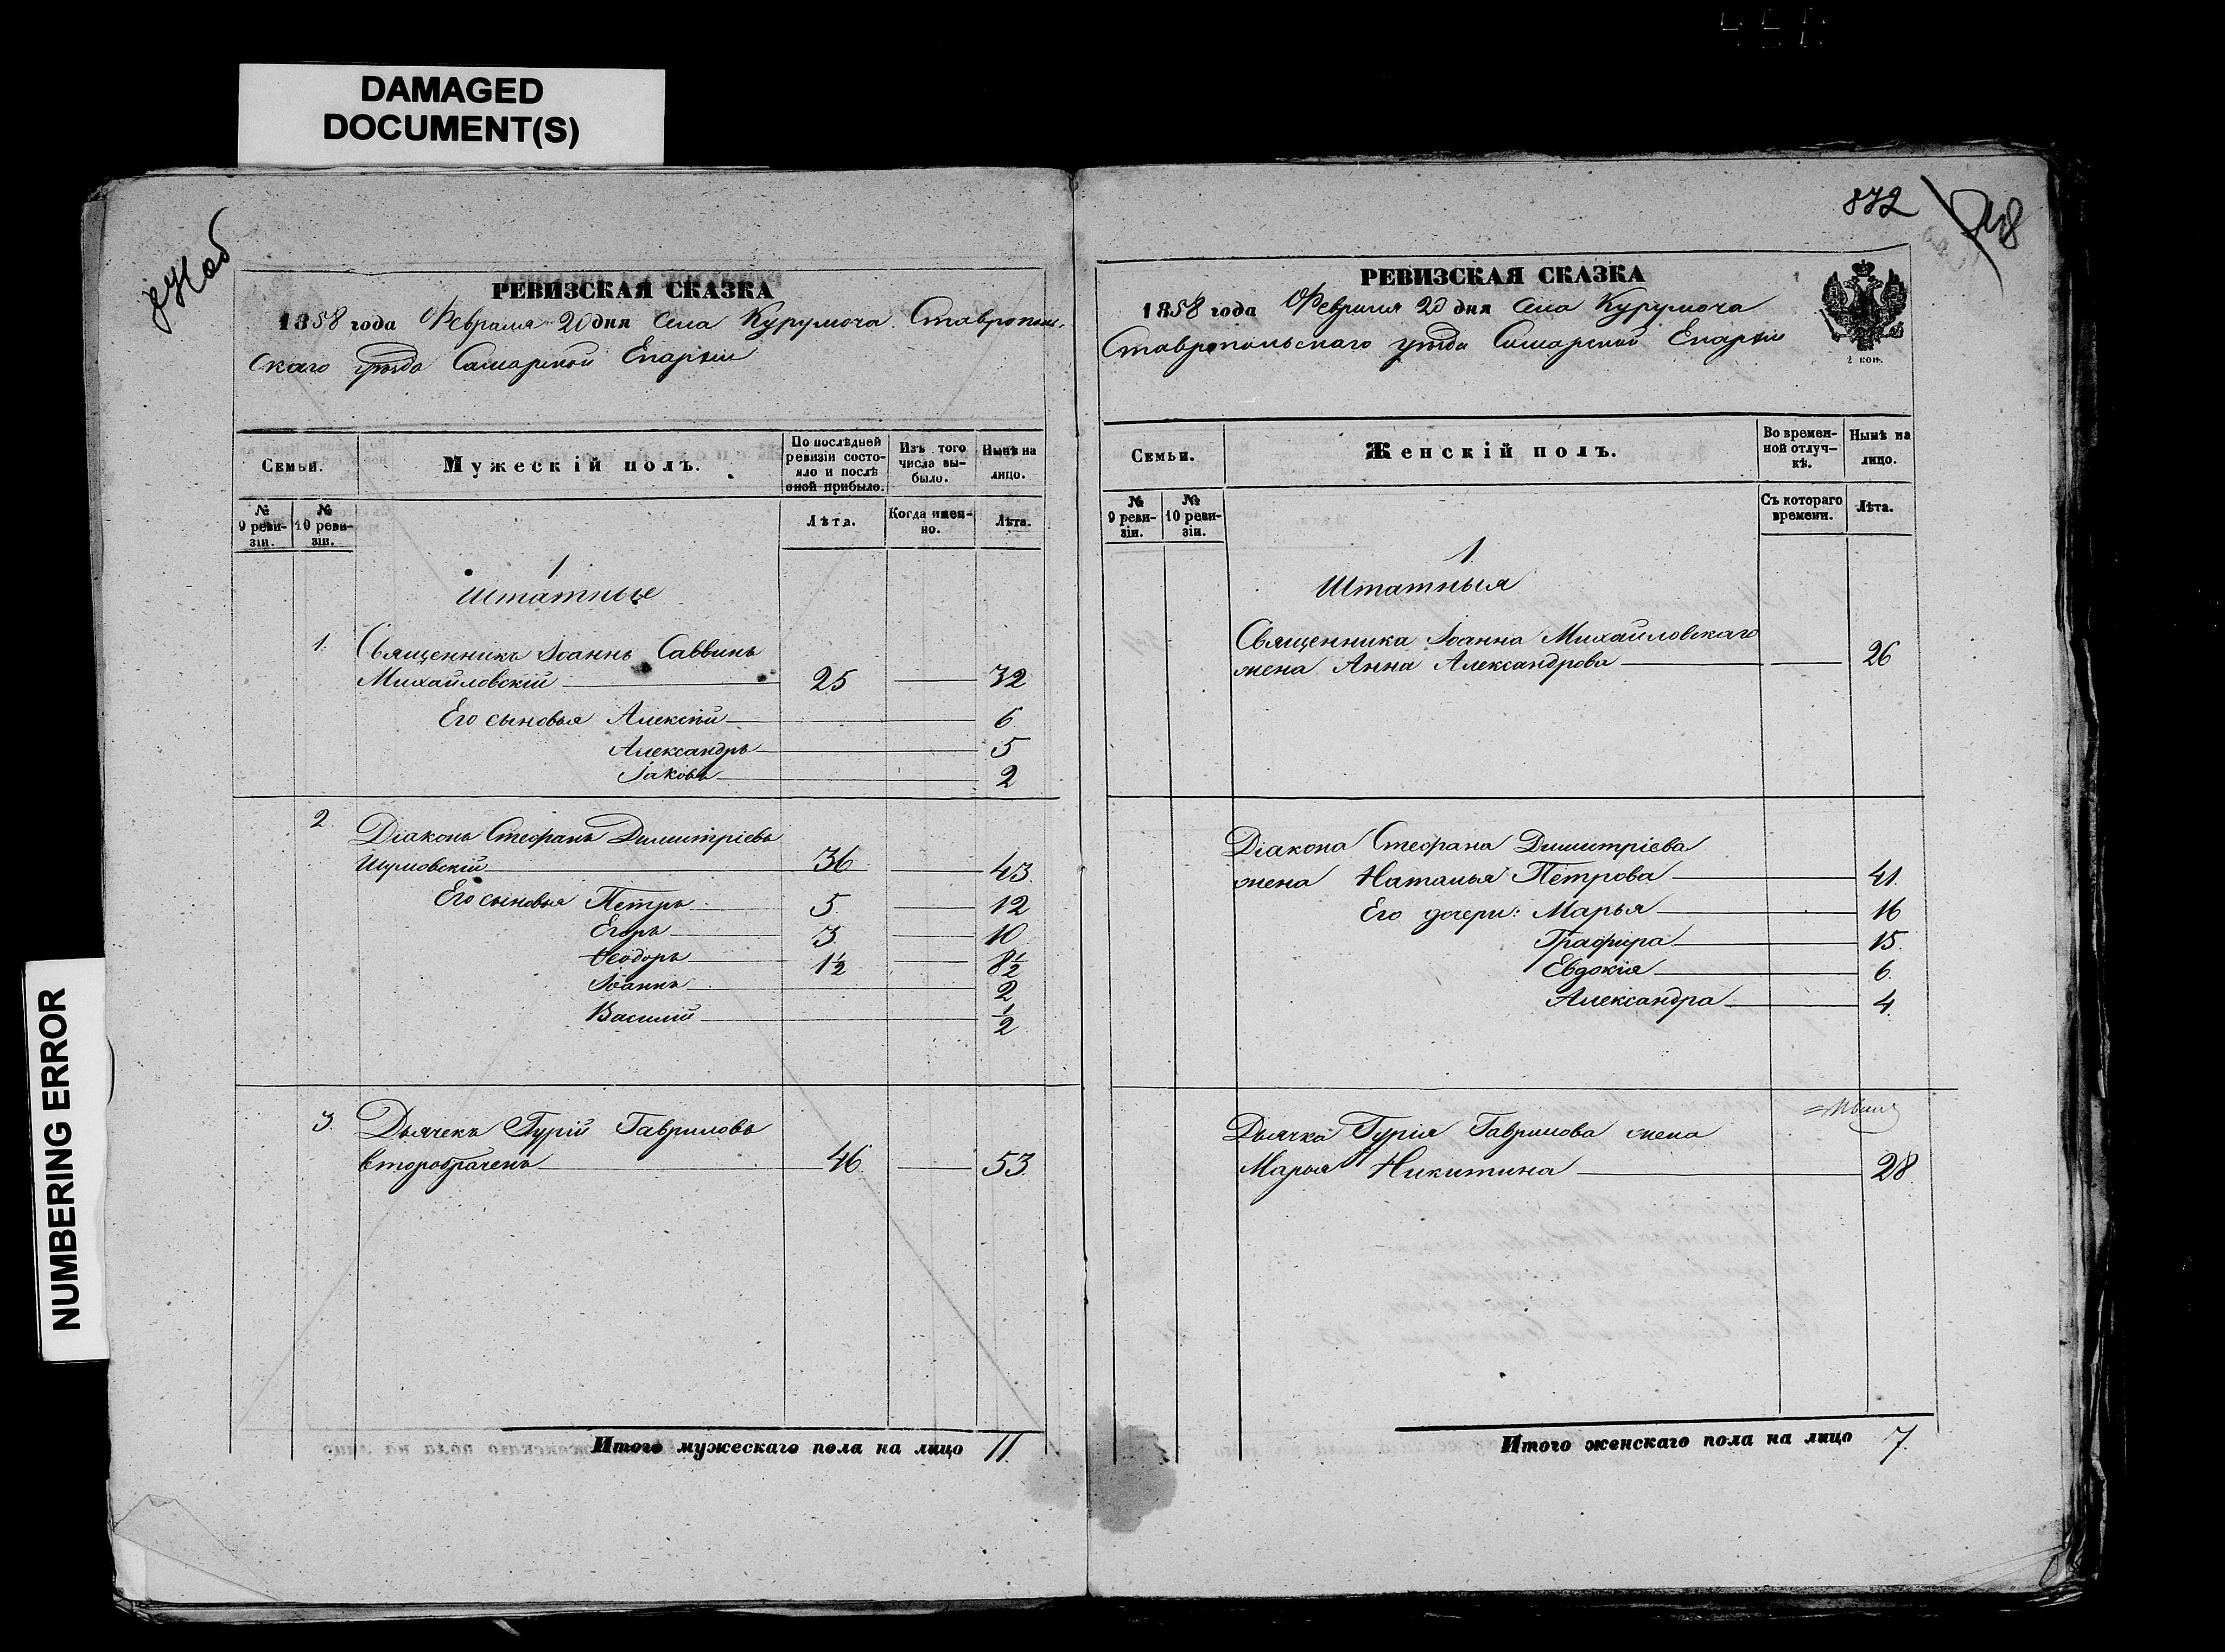 DAMAGED
DOCUMENT(S)
NUMBERING ERROR
РЕВИЗСКАЯ СКАЗКА
1858 года Февраля 20 дня Села Курумоча Ставрополь-
скаго уѣзда Самарской Епархіи
Семьи.
Мужескій полъ.
По послѣдней ревизіи состояло и послѣ оной прибыло.
Изъ того числа выбыло.
Нынѣ на лицо.
№ 9 ревизіи.
№ 10 ревизіи.
Лѣта.
Когда именно.
Лѣта.
1
Штатные
1. Священникъ Іоаннъ Саввинъ
Михайловскій 25 32
Его сыновья Алексѣй 6
Александръ 5
Іаковъ 2
2. Діаконъ Стефанъ Димитріевъ
Шумовскій 36 43.
Его сыновья Петръ 5. 12
Егоръ 3 10
Ѳеодоръ 1½ 8½
Іоаннъ 2
Василій ½
3. Дьячекъ Гурій Гавриловъ
второбраченъ 46. 53.
Итого мужескаго пола на лицо 11.
872
РЕВИЗСКАЯ СКАЗКА
1858 года Февраля 20 дня Села Курумоча
Ставропольскаго уѣзда Самарской Епархіи
2 коп.
Семьи.
Женскій полъ.
Во временной отлучкѣ.
Нынѣ на лицо.
№ 9 ревизіи.
№ 10 ревизіи.
Съ котораго времени.
Лѣта.
1
Штатныя
Священника Іоанна Михайловскаго
жена Анна Александрова 26
Діакона Стефана Димитріева
жена Наталья Петрова 41.
Его дочери: Марья 16
Глафира 15.
Евдокія 6
Александра 4.
Дьячка Гурія Гаврилова жена
Марья Никитина 28.
Итого женскаго пола на лицо 7.